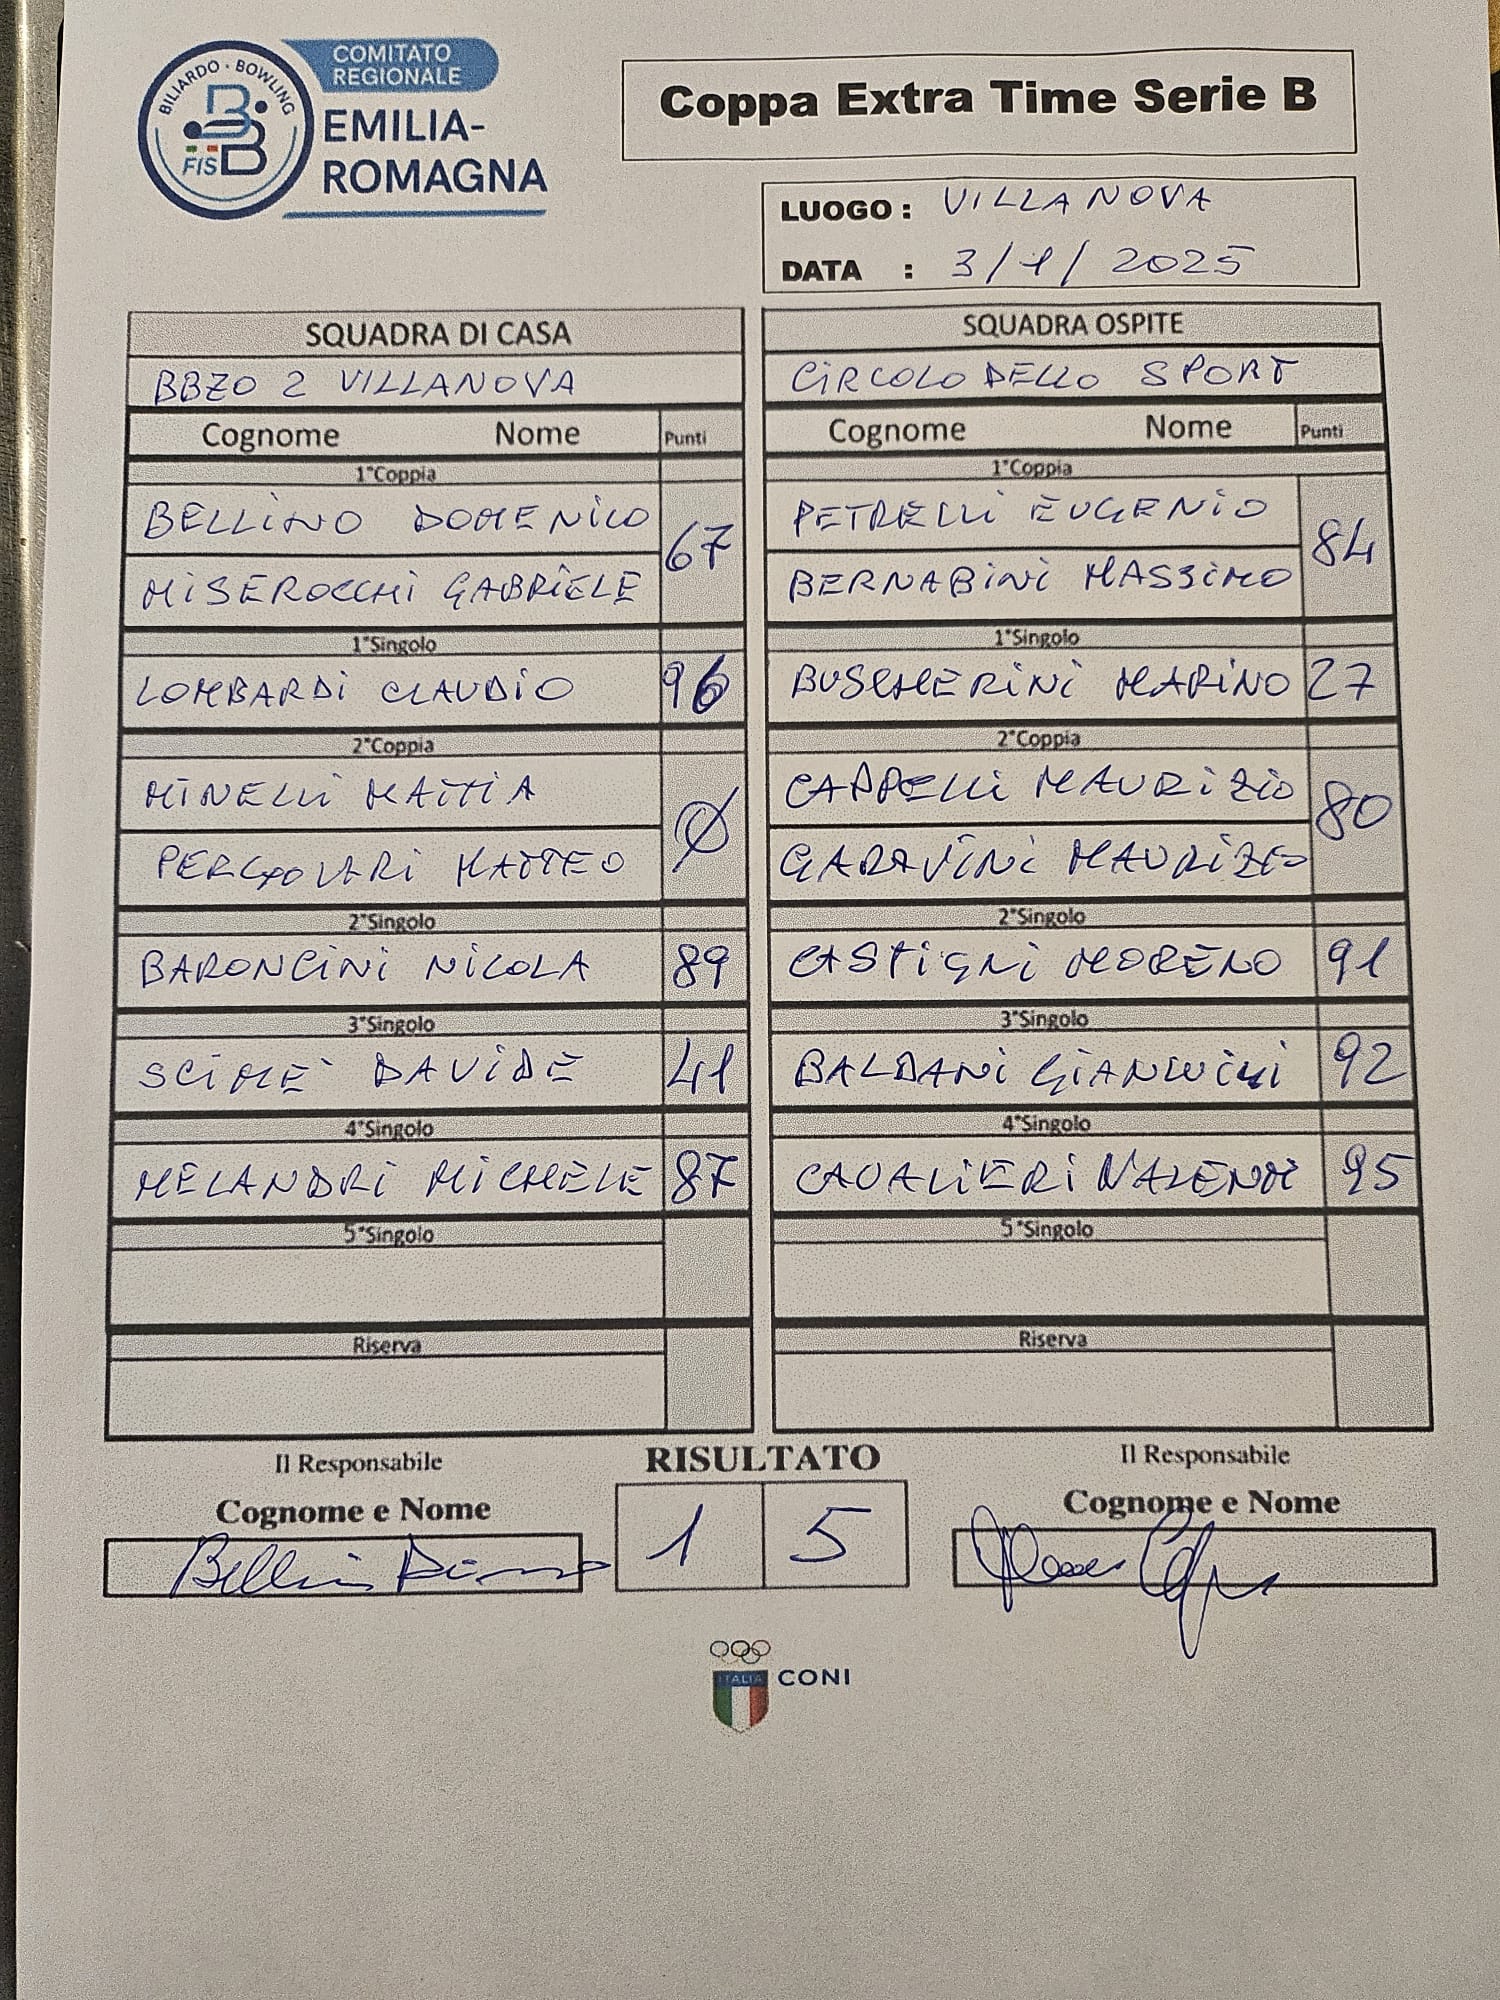 BILIARDO · BOWLING
FISBB
COMITATO
REGIONALE
EMILIA-
ROMAGNA
Coppa Extra Time Serie B
LUOGO : VILLANOVA
DATA : 3/1/2025
SQUADRA DI CASA
BBZO 2 VILLANOVA
Cognome Nome Punti
1°Coppia
BELLINO DOMENICO 67
MISEROCCHI GABRIELE
1°Singolo
LOMBARDI CLAUDIO 96
2°Coppia
MINELLI MATTIA 0
MATTEO
2°Singolo
BARONCINI NICOLA 89
3°Singolo
SCIME' DAVIDE 41
4°Singolo
MELANDRI MICHELE 87
5°Singolo
Riserva
SQUADRA OSPITE
CIRCOLO DELLO SPORT
Cognome Nome Punti
1°Coppia
PETRELLI EUGENIO 84
BERNABINI MASSIMO
1°Singolo
BUSCHERINI MARINO 27
2°Coppia
CAPPELLI MAURIZIO 80
GARAVINI MAURIZIO
2°Singolo
CASTIGNI MORENO 91
3°Singolo
BALDANI 92
4°Singolo
CAVALIERI 95
5°Singolo
Riserva
Il Responsabile
Cognome e Nome
RISULTATO
1 5
Il Responsabile
Cognome e Nome
ITALIA
CONI